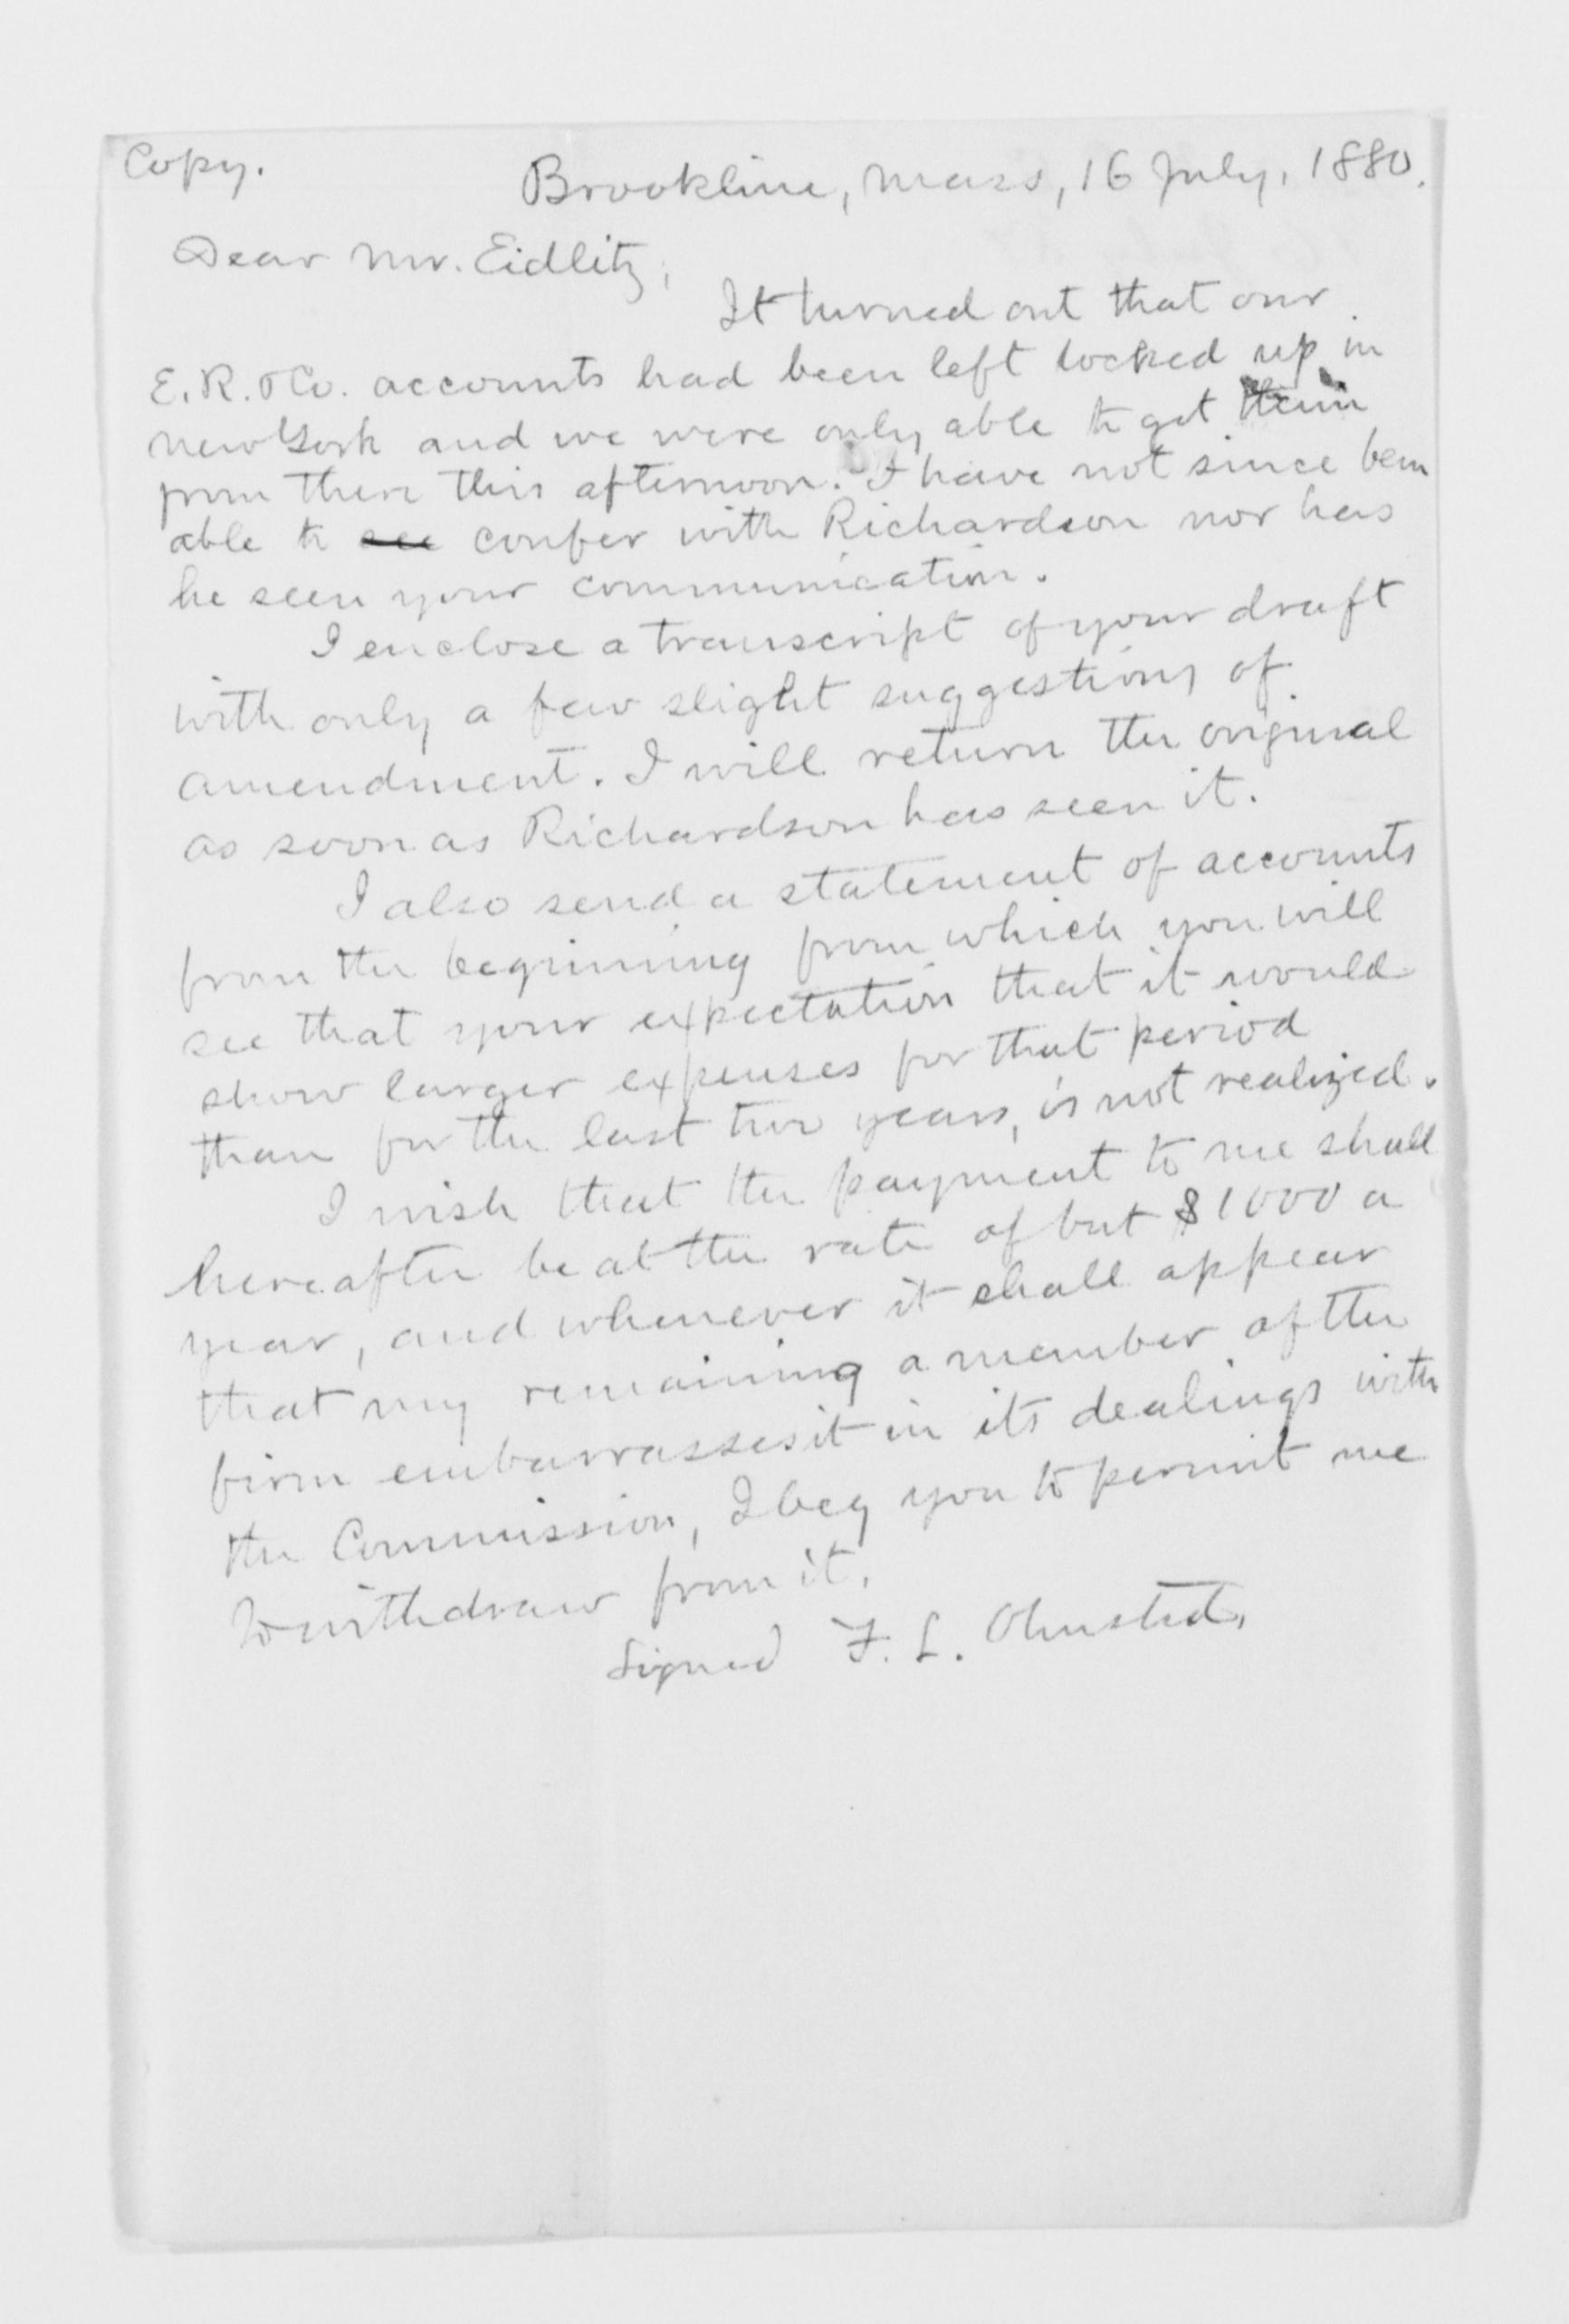 Copy.
Brookline, Mass, 16 July, 1880.
Dear Mr. Eidlitz,
It turned out that our
E. R. & Co. accounts had been left locked up in
New York and we were only able to get them
from there this afternoon. I have not since been
able to see confer with Richardson nor has
he seen your communication.
I enclose a transcript of your draft
with only a few slight suggestions of
amendment. I will return the original
as soon as Richardson has seen it.
I also send a statement of accounts
from the beginning from which you will
see that your expectation that it would
show larger expenses for that period
than for the last two years, is not realized.
I wish that the payment to me shall
hereafter be at the rate of but $1000 a
year, and whenever it shall appear
that my remaining a member of the
firm embarrasses it in its dealings with
the Commission, I beg you to permit me
to withdraw from it.
Signed F. L. Olmsted.